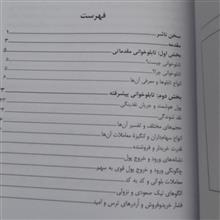 فهرست
سخن ناشر ۱
مقدمه ۳
بخش اول: تابلوخوانی مقدماتی
تابلوخوانی چیست؟
تابلوخوانی چرا؟
انواع تابلوها و معرفی آن‌ها
بخش دوم: تابلوخوانی پیشرفته
پول هوشمند و جریان نقدینگی
نقد شوندگی
حجم‌های مختلف و تفسیر آن‌ها
انواع سهام‌داران و انگیزهٔ معاملات آن‌ها
قدرت خریدار و فروشنده
نشانه‌های ورود و خروج پول
چگونگی ورود و خروج پول قوی به سهم
معاملات بلوکی و کد به کد
الگوهای تیک صعودی و نزولی
فشار خریدوفروش و آردرهای ترس و امید